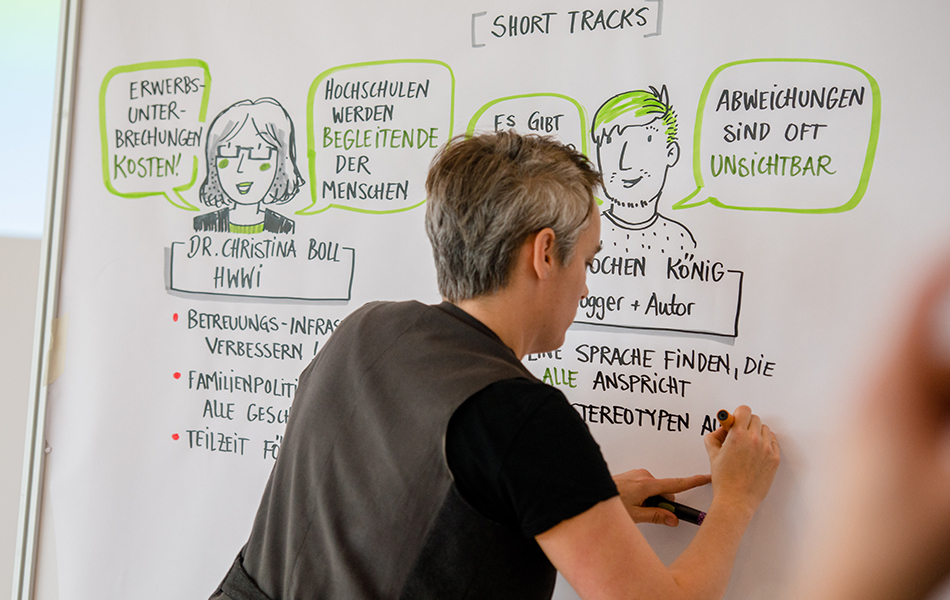 [SHORT TRACKS]
ERWERBS-
UNTER-
BRECHUNGEN
KOSTEN!
HOCHSCHULEN
WERDEN
BEGLEITENDE
DER
MENSCHEN
ES GIBT
ABWEICHUNGEN
SIND OFT
UNSICHTBAR
DR. CHRISTINA BOLL
HWWi
OCHEN KÖNIG
ogger + Autor
• BETREUUNGS-INFRAS
VERBESSERN
• FAMILIENPOLITI
ALLE GESCH
• TEILZEIT FÖ
INE SPRACHE FINDEN, DIE
ALLE ANSPRICHT
TEREOTYPEN